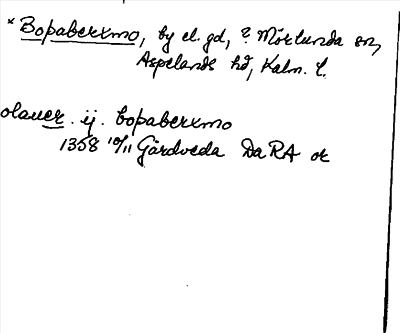 * Bopaberxmo, by el. gd, ? Mörlunda sn,
Aspelands hd, Kalm. l.
olauer . ij . bopaberxmo
1358 10/11 Gårdveda DaRA or